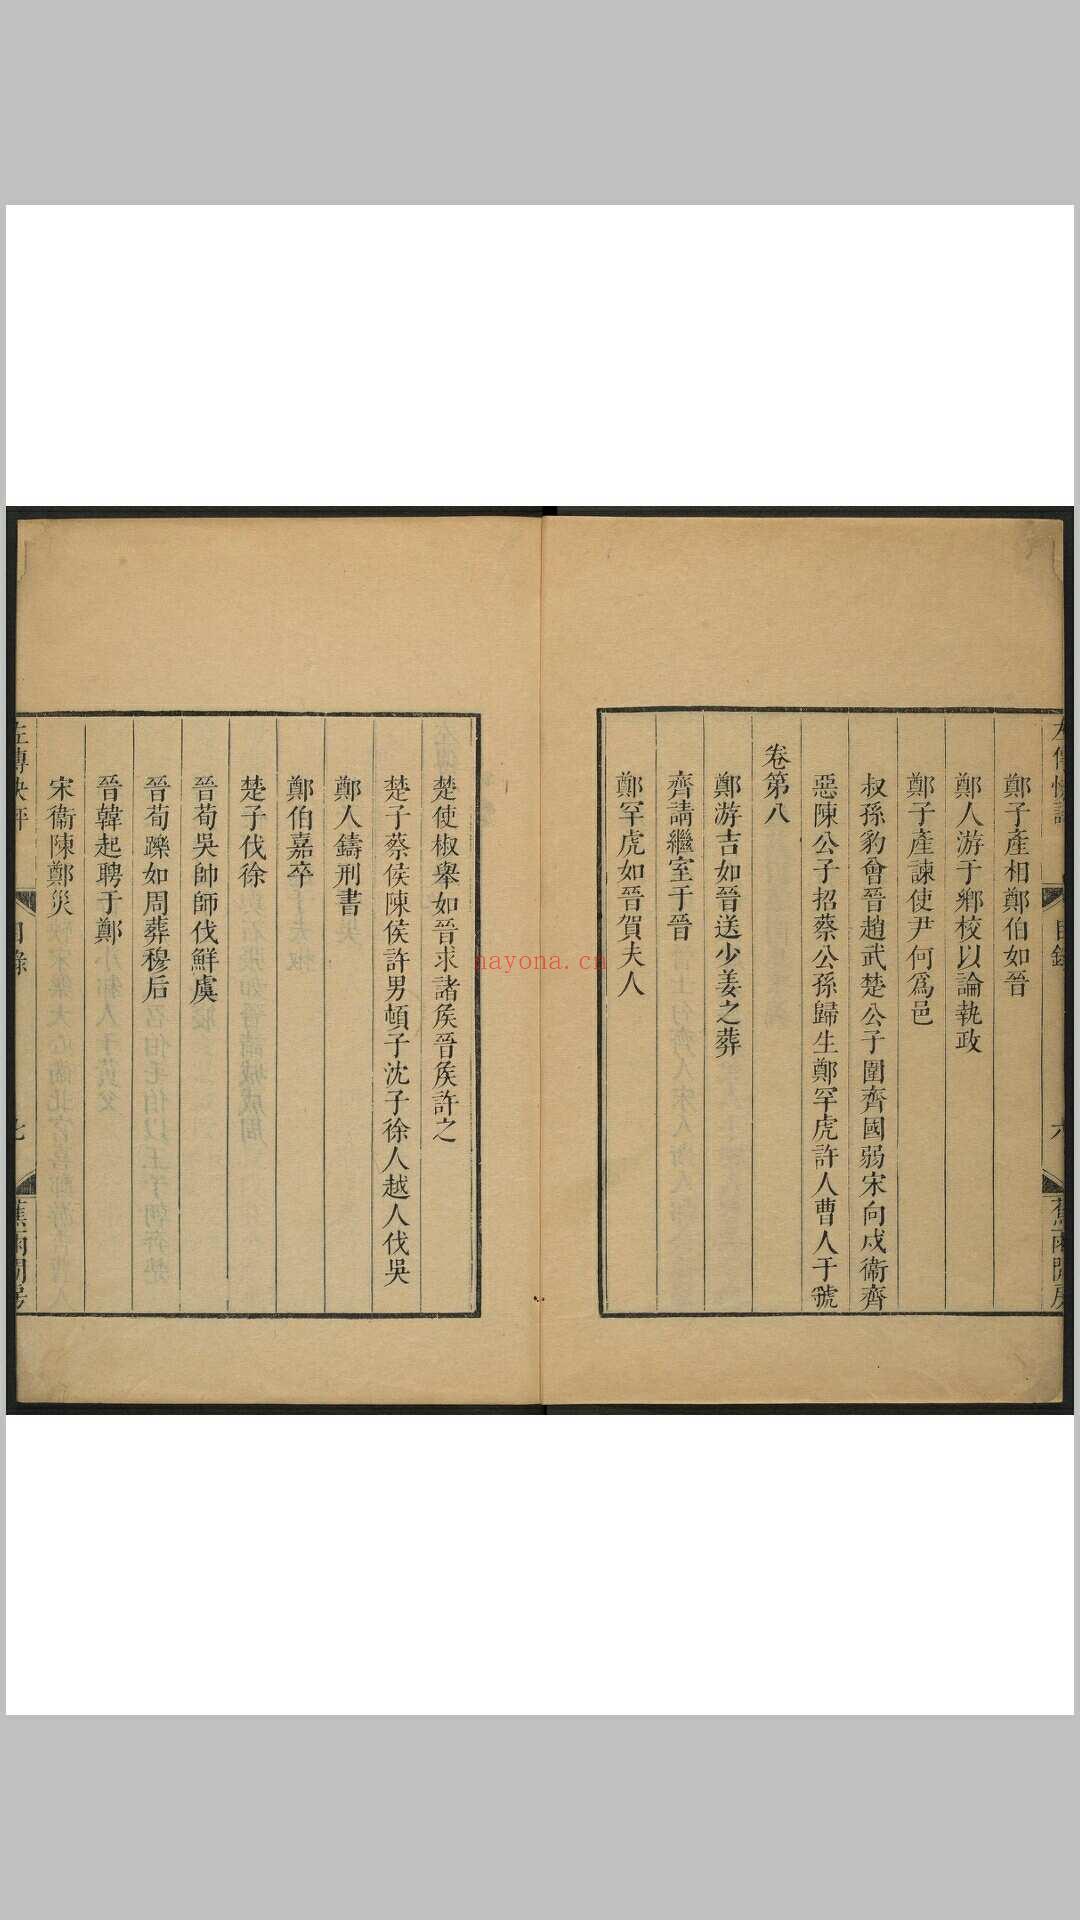 左傳快評
目錄
六
蕉雨閒房
鄭子產相鄭伯如晉
鄭人游于鄉校以論執政
鄭子產諫使尹何爲邑
叔孫豹會晉趙武楚公子圍齊國弱宋向戌衞齊
惡陳公子招蔡公孫歸生鄭罕虎許人曹人于虢
卷第八
鄭游吉如晉送少姜之葬
齊請繼室于晉
鄭罕虎如晉賀夫人
楚使椒舉如晉求諸矦晉矦許之
楚子蔡侯陳侯許男頓子沈子徐人越人伐吳
鄭人鑄刑書
鄭伯嘉卒
楚子伐徐
晉荀吳帥師伐鮮虞
晉荀躒如周葬穆后
晉韓起聘于鄭
宋衞陳鄭災
左傳快評
目錄
七
蕉雨閒房
nayona.cn